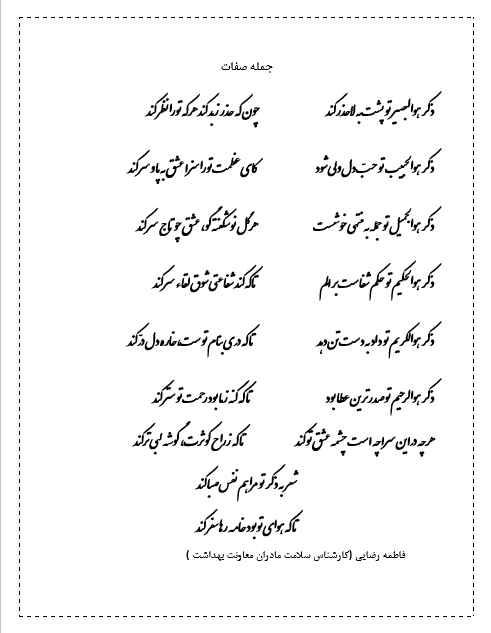 جمله صفات
ذکر هوالبصیر تو پشت به لاحذر کند چون که حذر زبد کند هر که تو را نظر کند
ذکر هوالحبیب تو حبّ دل ولی شود کای عظمت تو را سزا عشق به پا و سر کند
ذکر هوالجمیل تو جمله به منتهی خوشست هر گل نوشکفته گو، عشق چو تاج سر کند
ذکر هوالحکیم تو حکم شفاست بر الم تا که کند شفاعتی شوق لقاء سر کند
ذکر هوالکریم تو داد به دست تن دهد تا که دری بنام توست، خاره دل در کند
ذکر هوالرحیم تو صدر ترین عطا بود تا که گنه زما بود رحمت تو ستر کند
هر چه در این سراچه است چشمه عشق تو کند تا که ز راح کوثرت، گوشه لبی تر کند
شعر به ذکر تو مرا هم نفس صبا کند
تا که هوای تو بود خامه رها سفر کند
فاطمه رضایی (کارشناس سلامت مادران معاونت بهداشت )